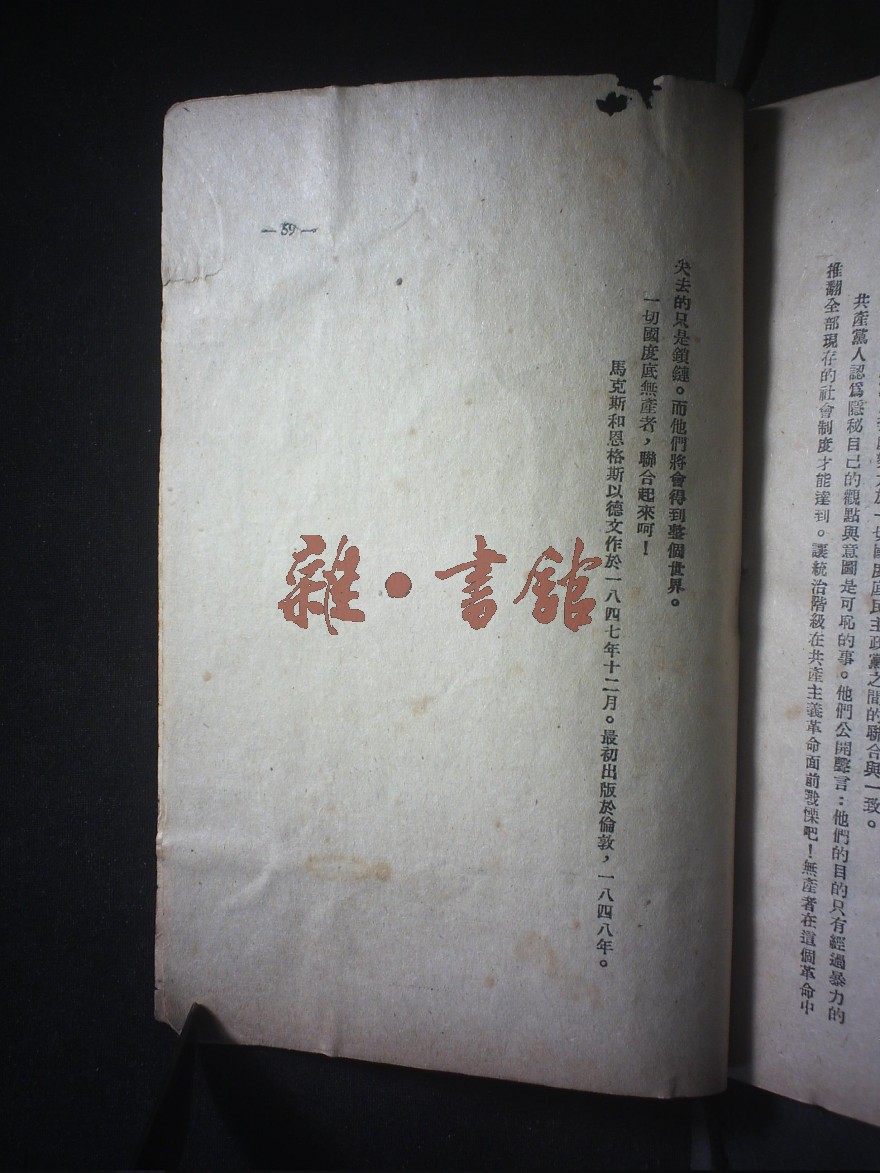 一切國度底民主政黨之間的聯合與一致。
共產黨人認爲隱秘自己的觀點與意圖是可恥的事。他們公開聲言：他們的目的只有經過暴力的
推翻全部現存的社會制度才能達到。讓統治階級在共產主義革命面前戰慄吧！無產者在這個革命中
失去的只是鎖鏈。而他們將會得到整個世界。
一切國度底無產者，聯合起來呵！
馬克斯和恩格斯以德文作於一八四七年十二月。最初出版於倫敦，一八四八年。
— 59 —
雜•書館